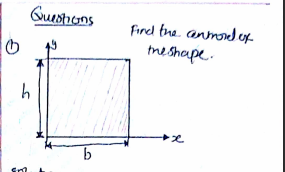 Questions
① Find the centroid of
the shape.
y
h
x
b